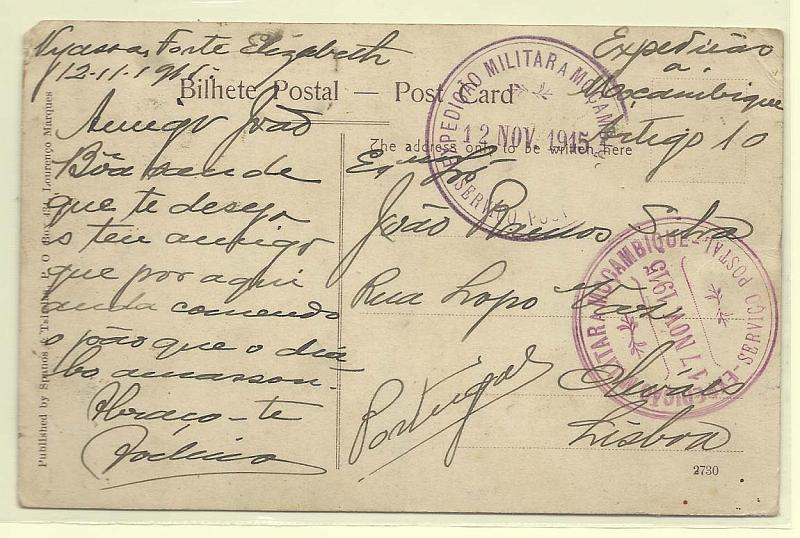 Nyassa, Forte Elizabeth
12-11-1915.
Bilhete Postal — Post Card
Amigo João
Bôa saude
que te desejo
o teu amigo
que por aqui
anda comendo
o pão que o diá-
bo amassou.
Abraço-te
Published by Spanos & Tsitsias, P. O. Box 434, Lourenço Marques
Expedicião
a
Moçambique
Artigo 10
The address only to be written here
João Ramos Silva
Rua Lopo Vaz
Lisboa
Portugal
2730
EXPEDIÇÃO MILITAR A MOÇAMBIQUE
12 NOV. 1915
SERVIÇO POSTAL
EXPEDIÇÃO MILITAR A MOÇAMBIQUE
17 NOV 1915
SERVIÇO POSTAL